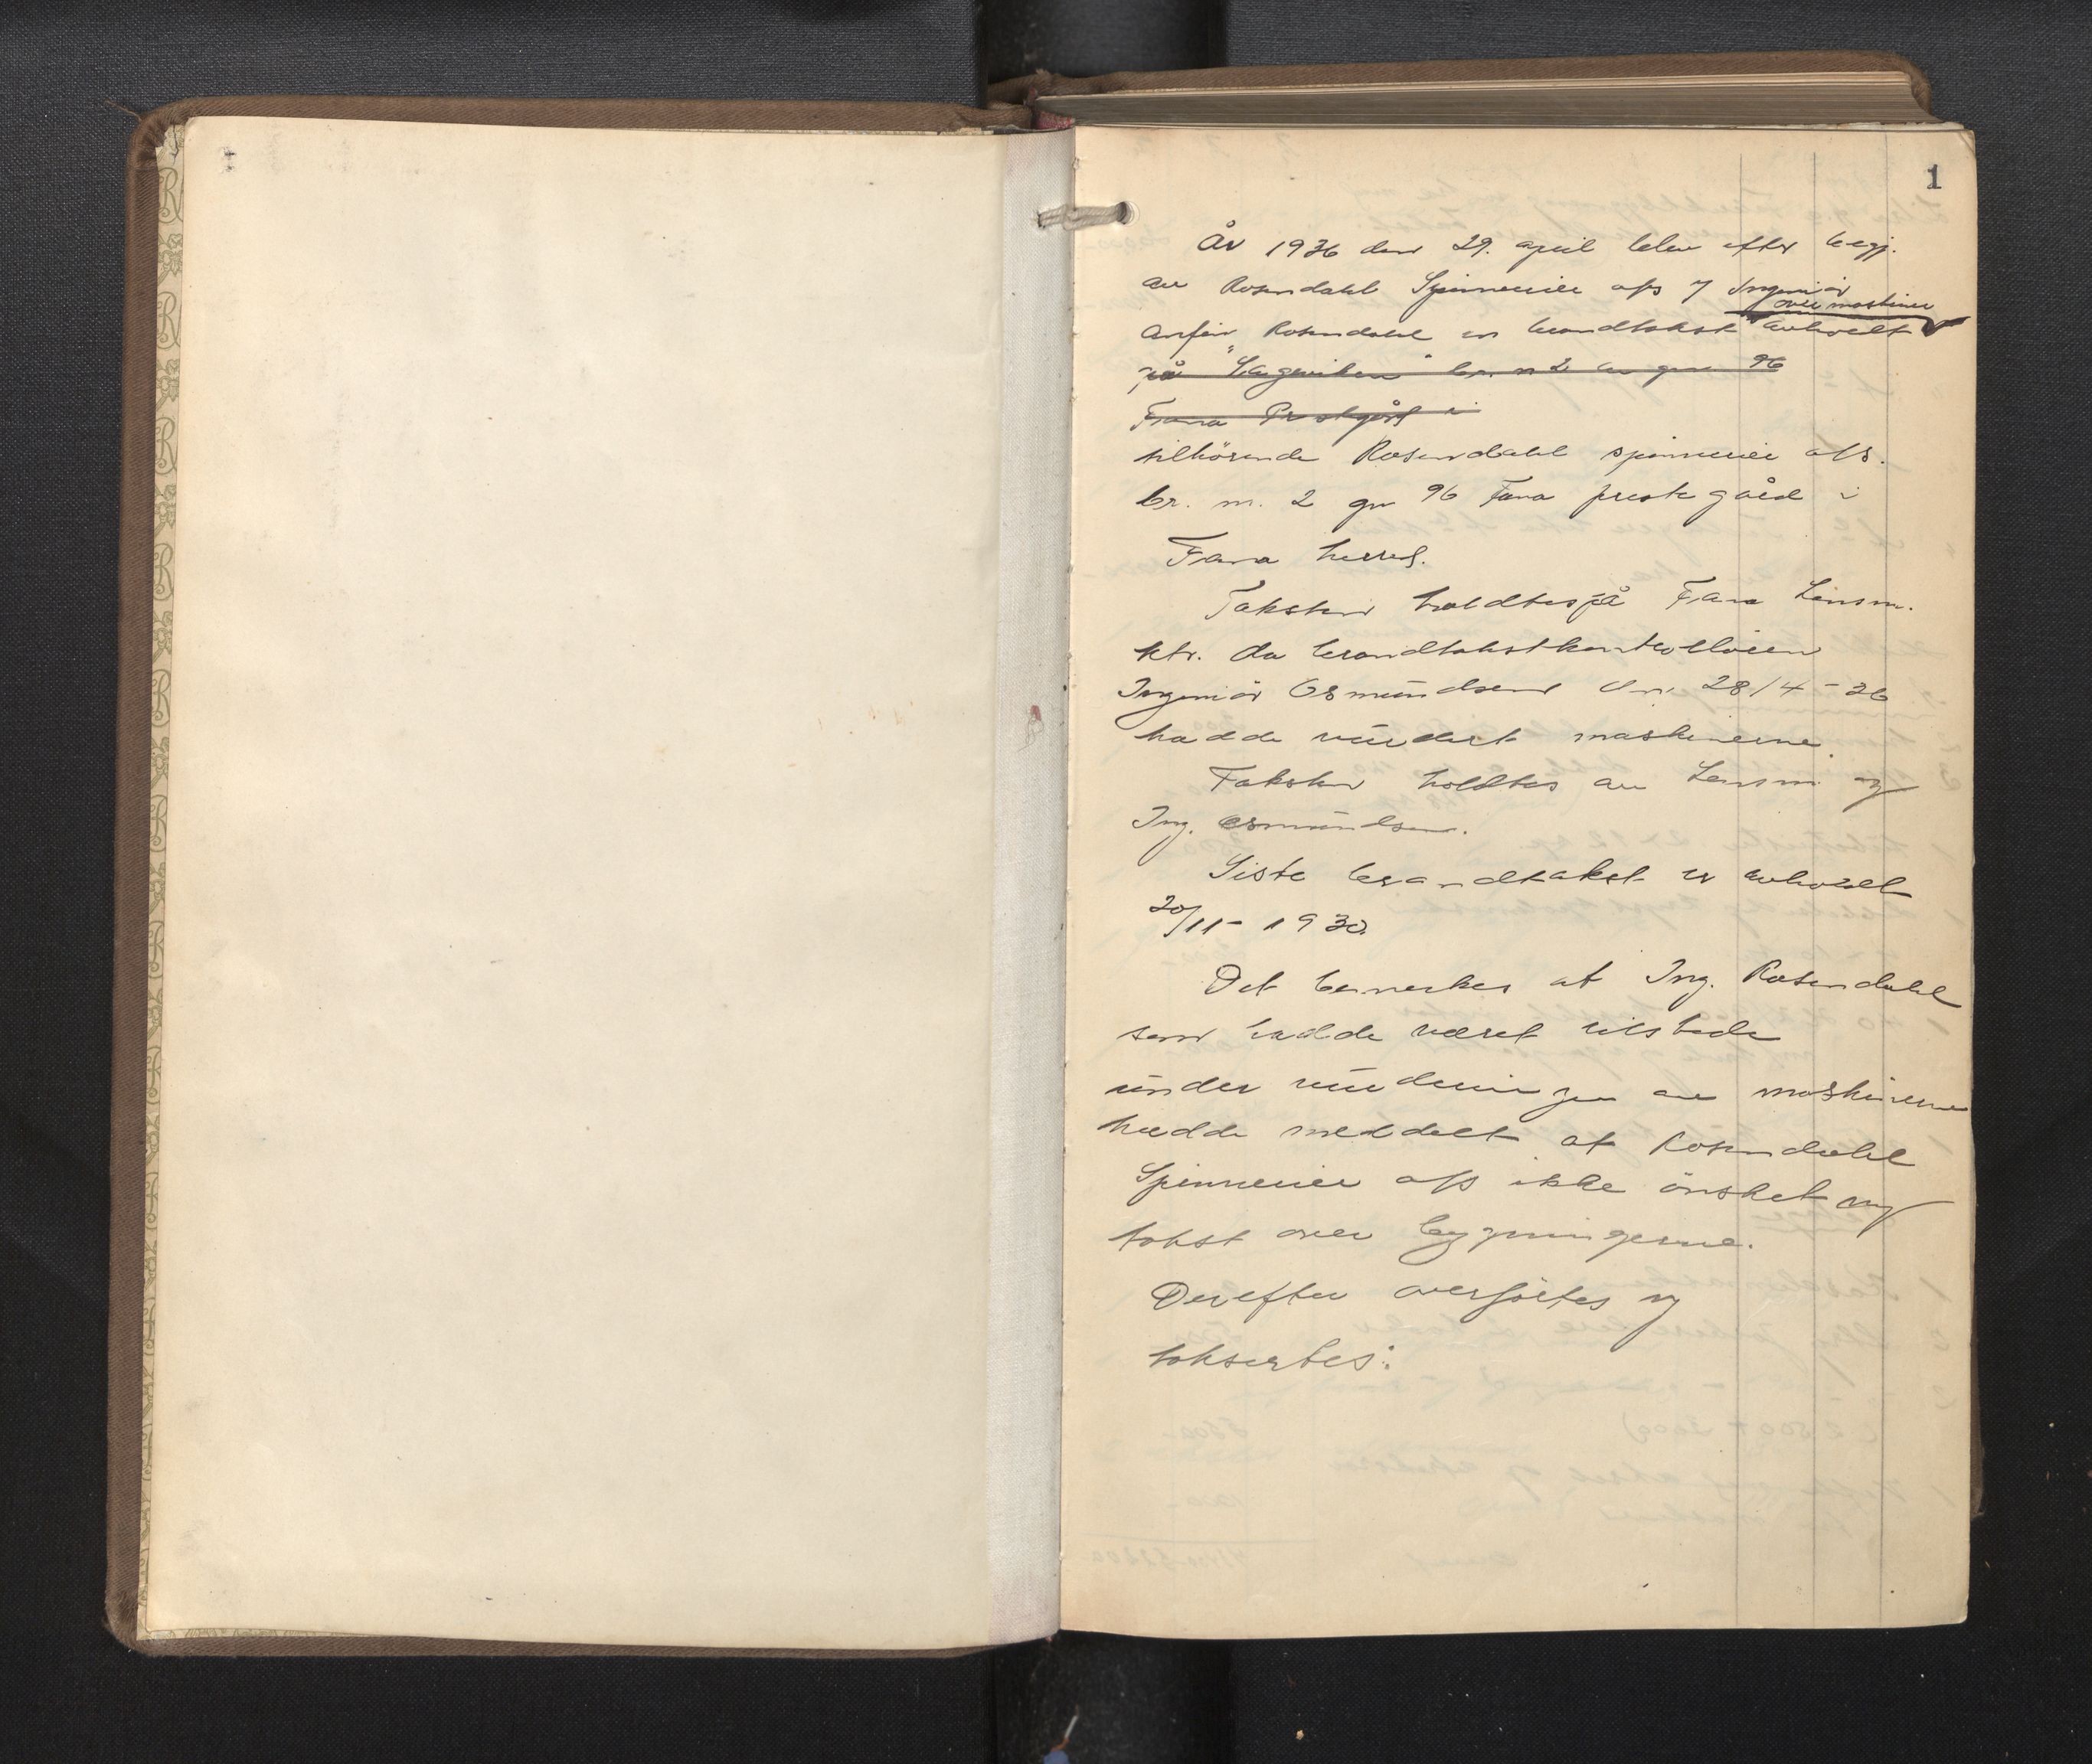 1
År 1936 den 29. april blev efter begj.
av Rosendahl Spinnerier a/s v Ingeniör
over maskiner
Rosendahl en brandtakst avholdt
på "Sagviken" br. n 2 av gnr 96
Fana Prestgård i
tilhörende Rosendahl spinnerier a/s.
br. nr. 2 gn 96 Fana prestegård i
Fana herred.
Taksten holdtes på Fana Lensm.
ktr. da brandtakstkontrolløren
Ingeniör Osmundsen den 28/4-36
hadde vurdert maskinerne.
Taksten holdtes av Lensm. og
Ing. Osmundsen.
Siste brandtakst er avholdt
20/11-1930.
Det bemerkes at Ing. Rosendahl
som hadde været tilstede
under vurderingen av maskinerne
hadde meddelt at Rosendahl
Spinnerier a/s ikke önsket ny
takst over bygningerne.
Derefter overförtes og
taksertes: